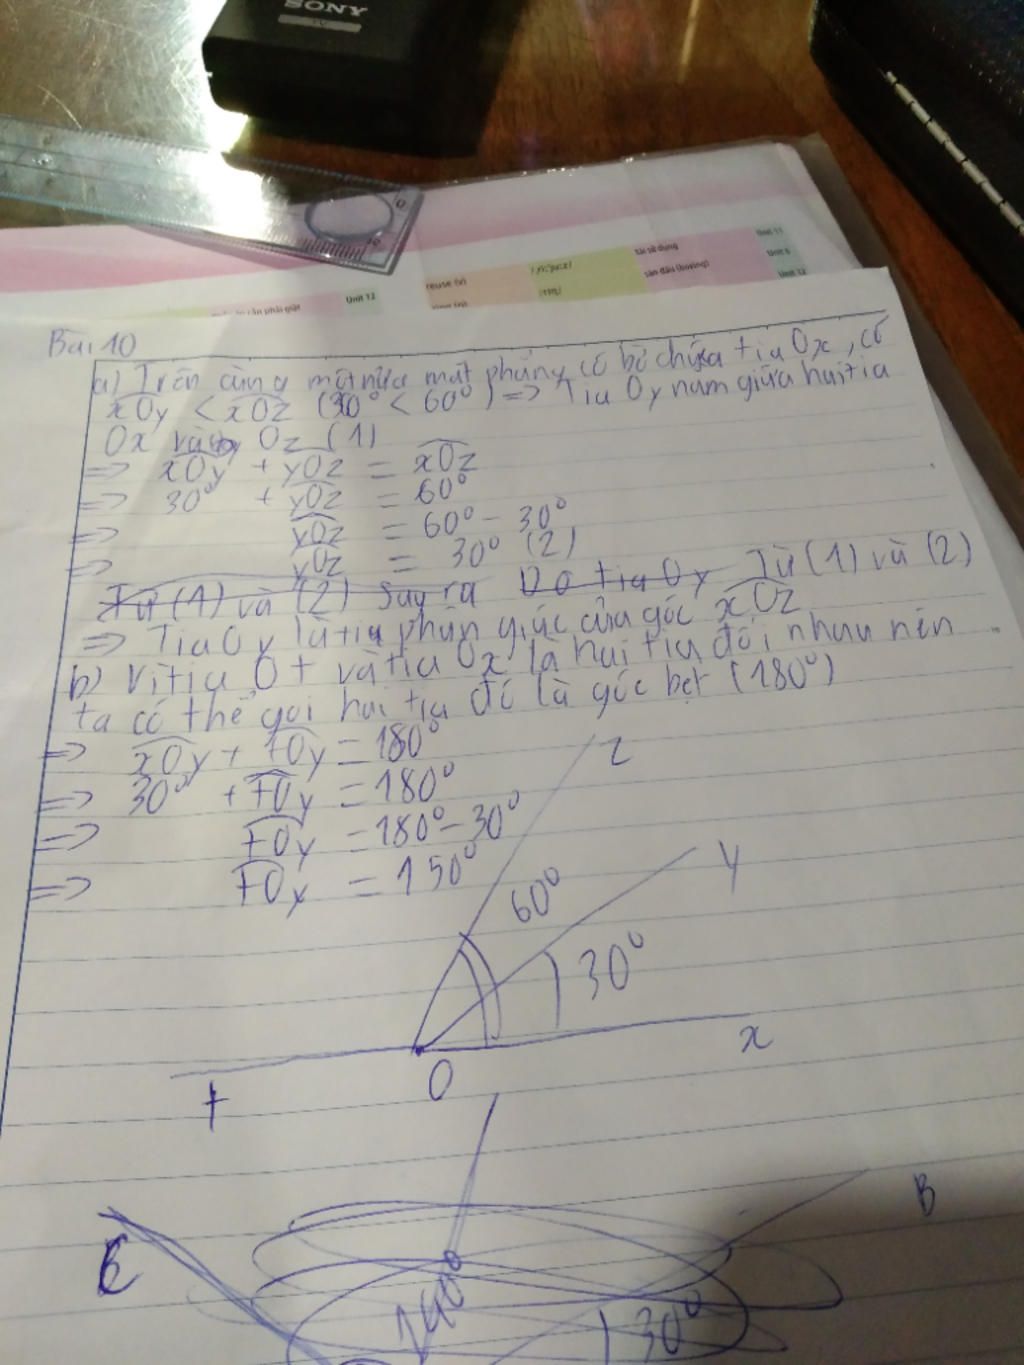 SONY
TV
Unit 11
tái sử dụng
Unit 5
reuse (v)
/ˌriːˈjuːz/
sân đấu (boxing)
Unit 12
Unit 12
/rɪŋ/
Bài 10
a) Trên cùng một nửa mặt phẳng có bờ chứa tia Ox, có
xOy < xOz (30° < 60°) => Tia Oy nằm giữa hai tia
Ox và Oz (1)
=> xOy + yOz = xOz
=> 30° + yOz = 60°
=> yOz = 60° - 30°
=> yOz = 30° (2)
Từ (1) và (2) suy ra Do tia Oy Từ (1) và (2)
=> Tia Oy là tia phân giác của góc xOz
b) Vì tia Ot và tia Ox là hai tia đối nhau nên
ta có thể gọi hai tia đó là góc bẹt (180°)
=> xOy + tOy = 180°
=> 30° + tOy = 180°
=> tOy = 180° - 30°
=> tOy = 150°
z
60°
y
30°
x
O
t
B
C
140°
30°